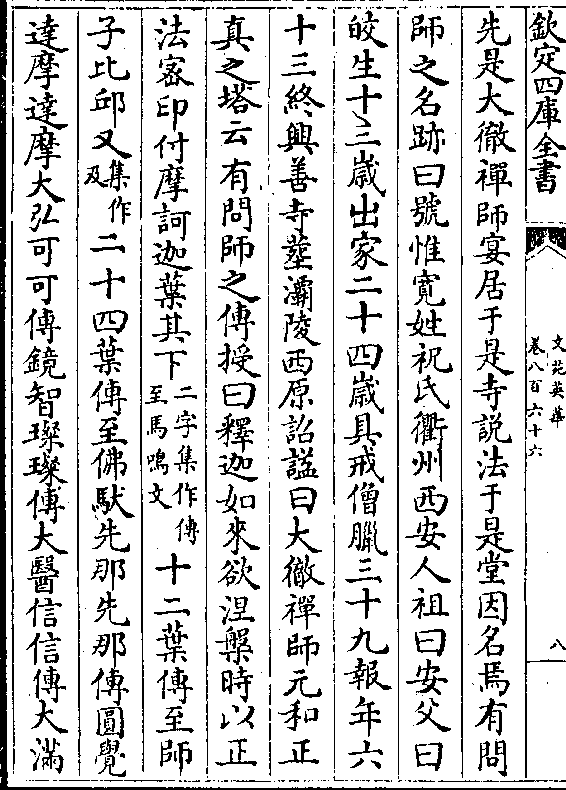 欽定四庫全書
文苑英華
卷八百六十六
八
先是大徹禪師宴居于是寺說法于是堂因名焉有問
師之名跡曰號惟寛姓祝氏衢州西安人祖曰安父曰
皎生十三歲出家二十四歲具戒僧臘三十九報年六
十三終興善寺塟灞陵西原詔諡曰大徹禪師元和正
真之塔云有問師之傳授曰釋迦如來欲涅槃時以正
法宻印付摩訶迦葉其下二字集作傳至馬鳴文十二葉傳至師
子比邱又集作及二十四葉傳至佛馱先那先那傳圓覺
達摩達摩大弘可可傳鏡智璨璨傳大醫信信傳大滿